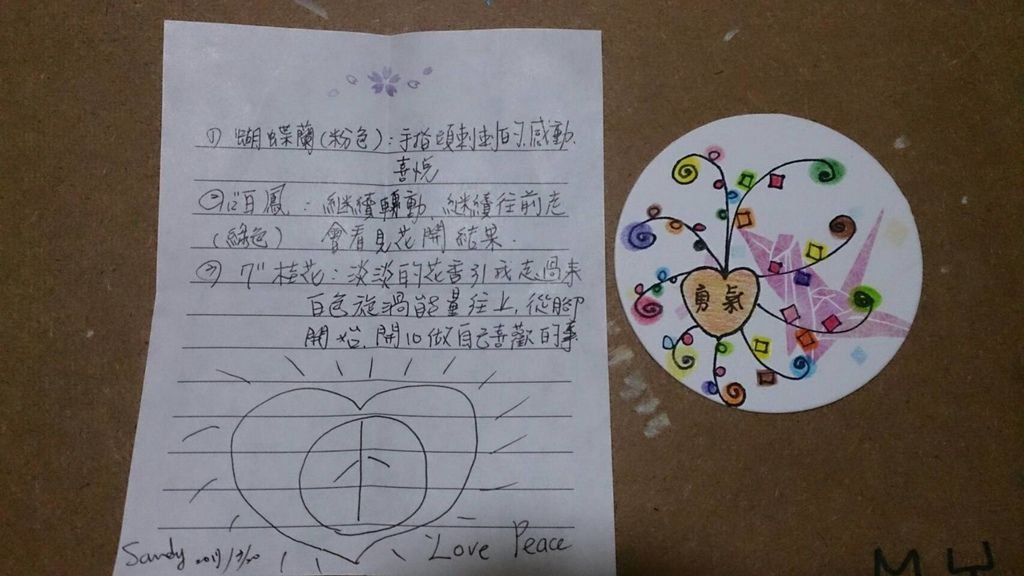 ① 蝴蝶蘭(粉色):手指頭刺刺的.感動.
喜悅
② 百鳳:繼續轉動,繼續往前走
(綠色) 會看見花開結果.
③ 桂花:淡淡的花香引我走過來
白色旋渦能量往上,從腳
開始,開心做自己喜歡的事
Sandy
Love Peace
勇氣